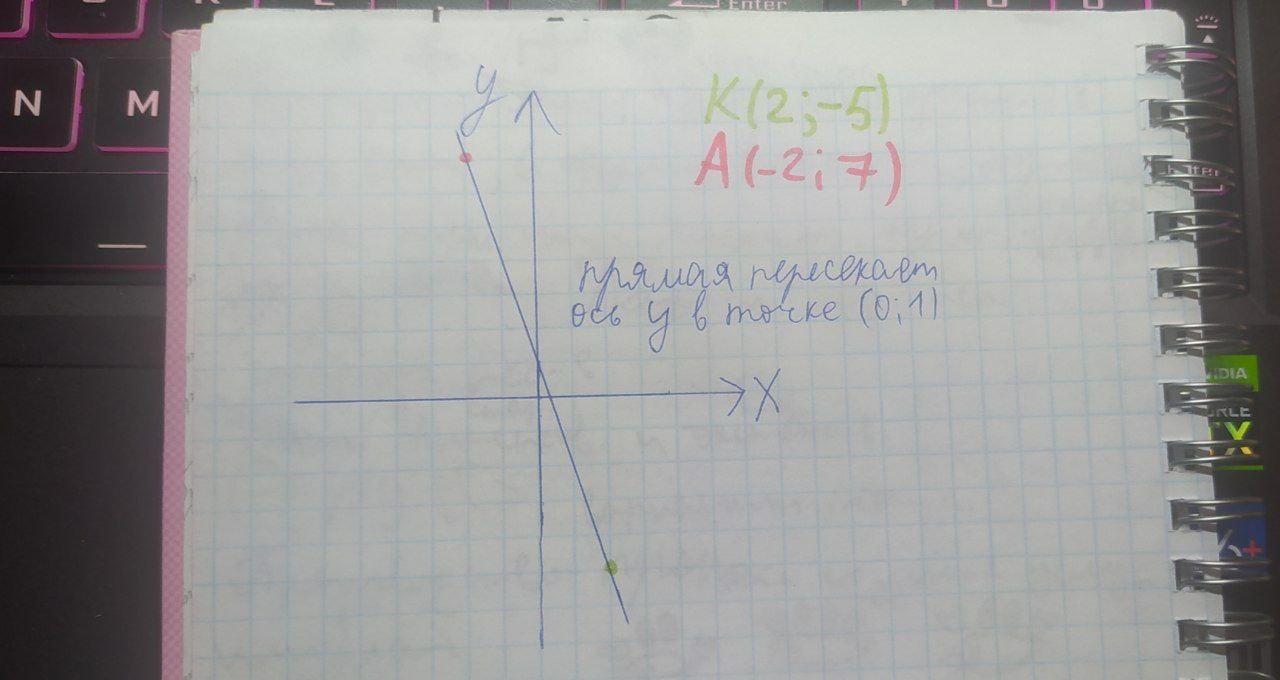 Enter
N
M
y
K(2;-5)
A(-2;7)
прямая пересекает
ось y в точке (0;1)
X